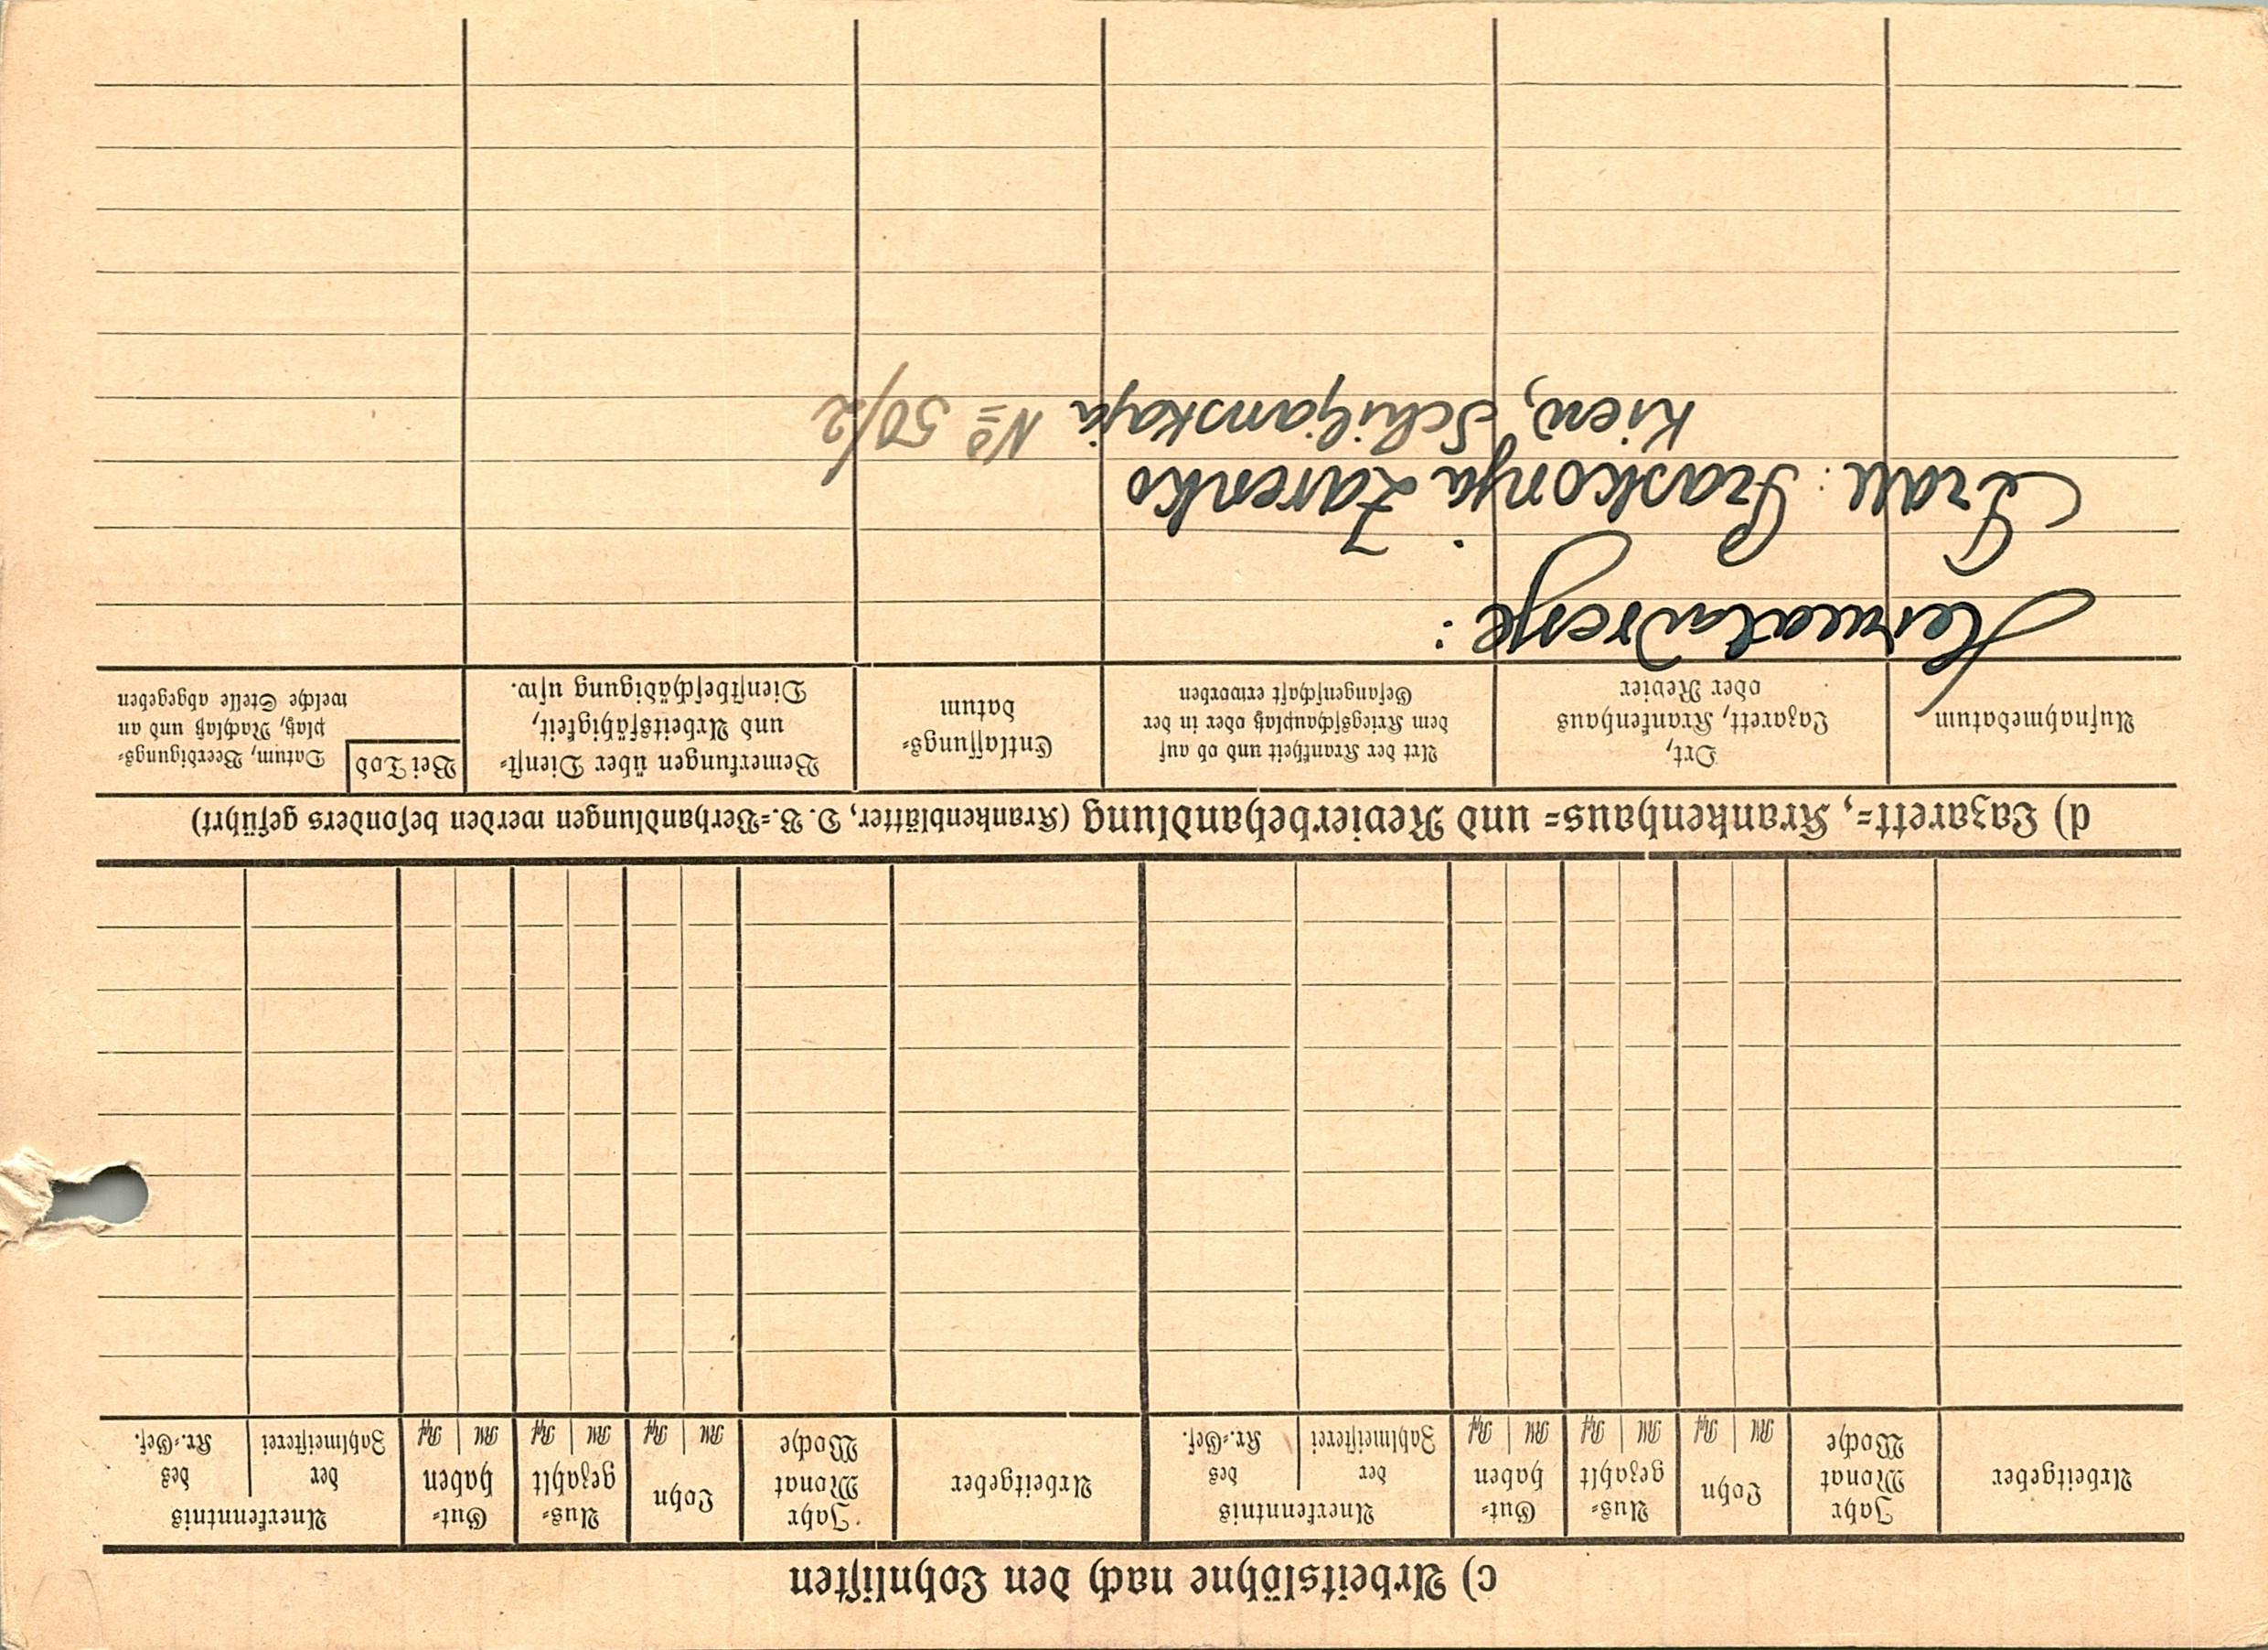 c) Arbeitslöhne nach den Lohnlisten
Arbeitgeber
Jahr
Monat
Woche
Lohn
RM Rpf
Aus-
gezahlt
RM Rpf
Gut-
haben
RM Rpf
Anerkenntnis
der
Zahlmeisterei
des
Kr.-Gef.
Arbeitgeber
Jahr
Monat
Woche
Lohn
RM Rpf
Aus-
gezahlt
RM Rpf
Gut-
haben
RM Rpf
Anerkenntnis
der
Zahlmeisterei
des
Kr.-Gef.
d) Lazarett-, Krankenhaus- und Revierbehandlung (Krankenblätter, D. B.-Verhandlungen werden besonders geführt)
Aufnahmedatum
Ort,
Lazarett, Krankenhaus
oder Revier
Art der Krankheit und ob auf
dem Kriegsschauplatz oder in der
Gefangenschaft erworben
Entlassungs-
datum
Bemerkungen über Dienst-
und Arbeitsfähigkeit,
Dienstbeschädigung usw.
Bei Tod
Datum, Beerdigungs-
platz, Nachlaß und an
welche Stelle abgegeben
Heimatadresse:
Frau: Praskonja Zarenko
Kiew, Schiljanskaja № 50/2